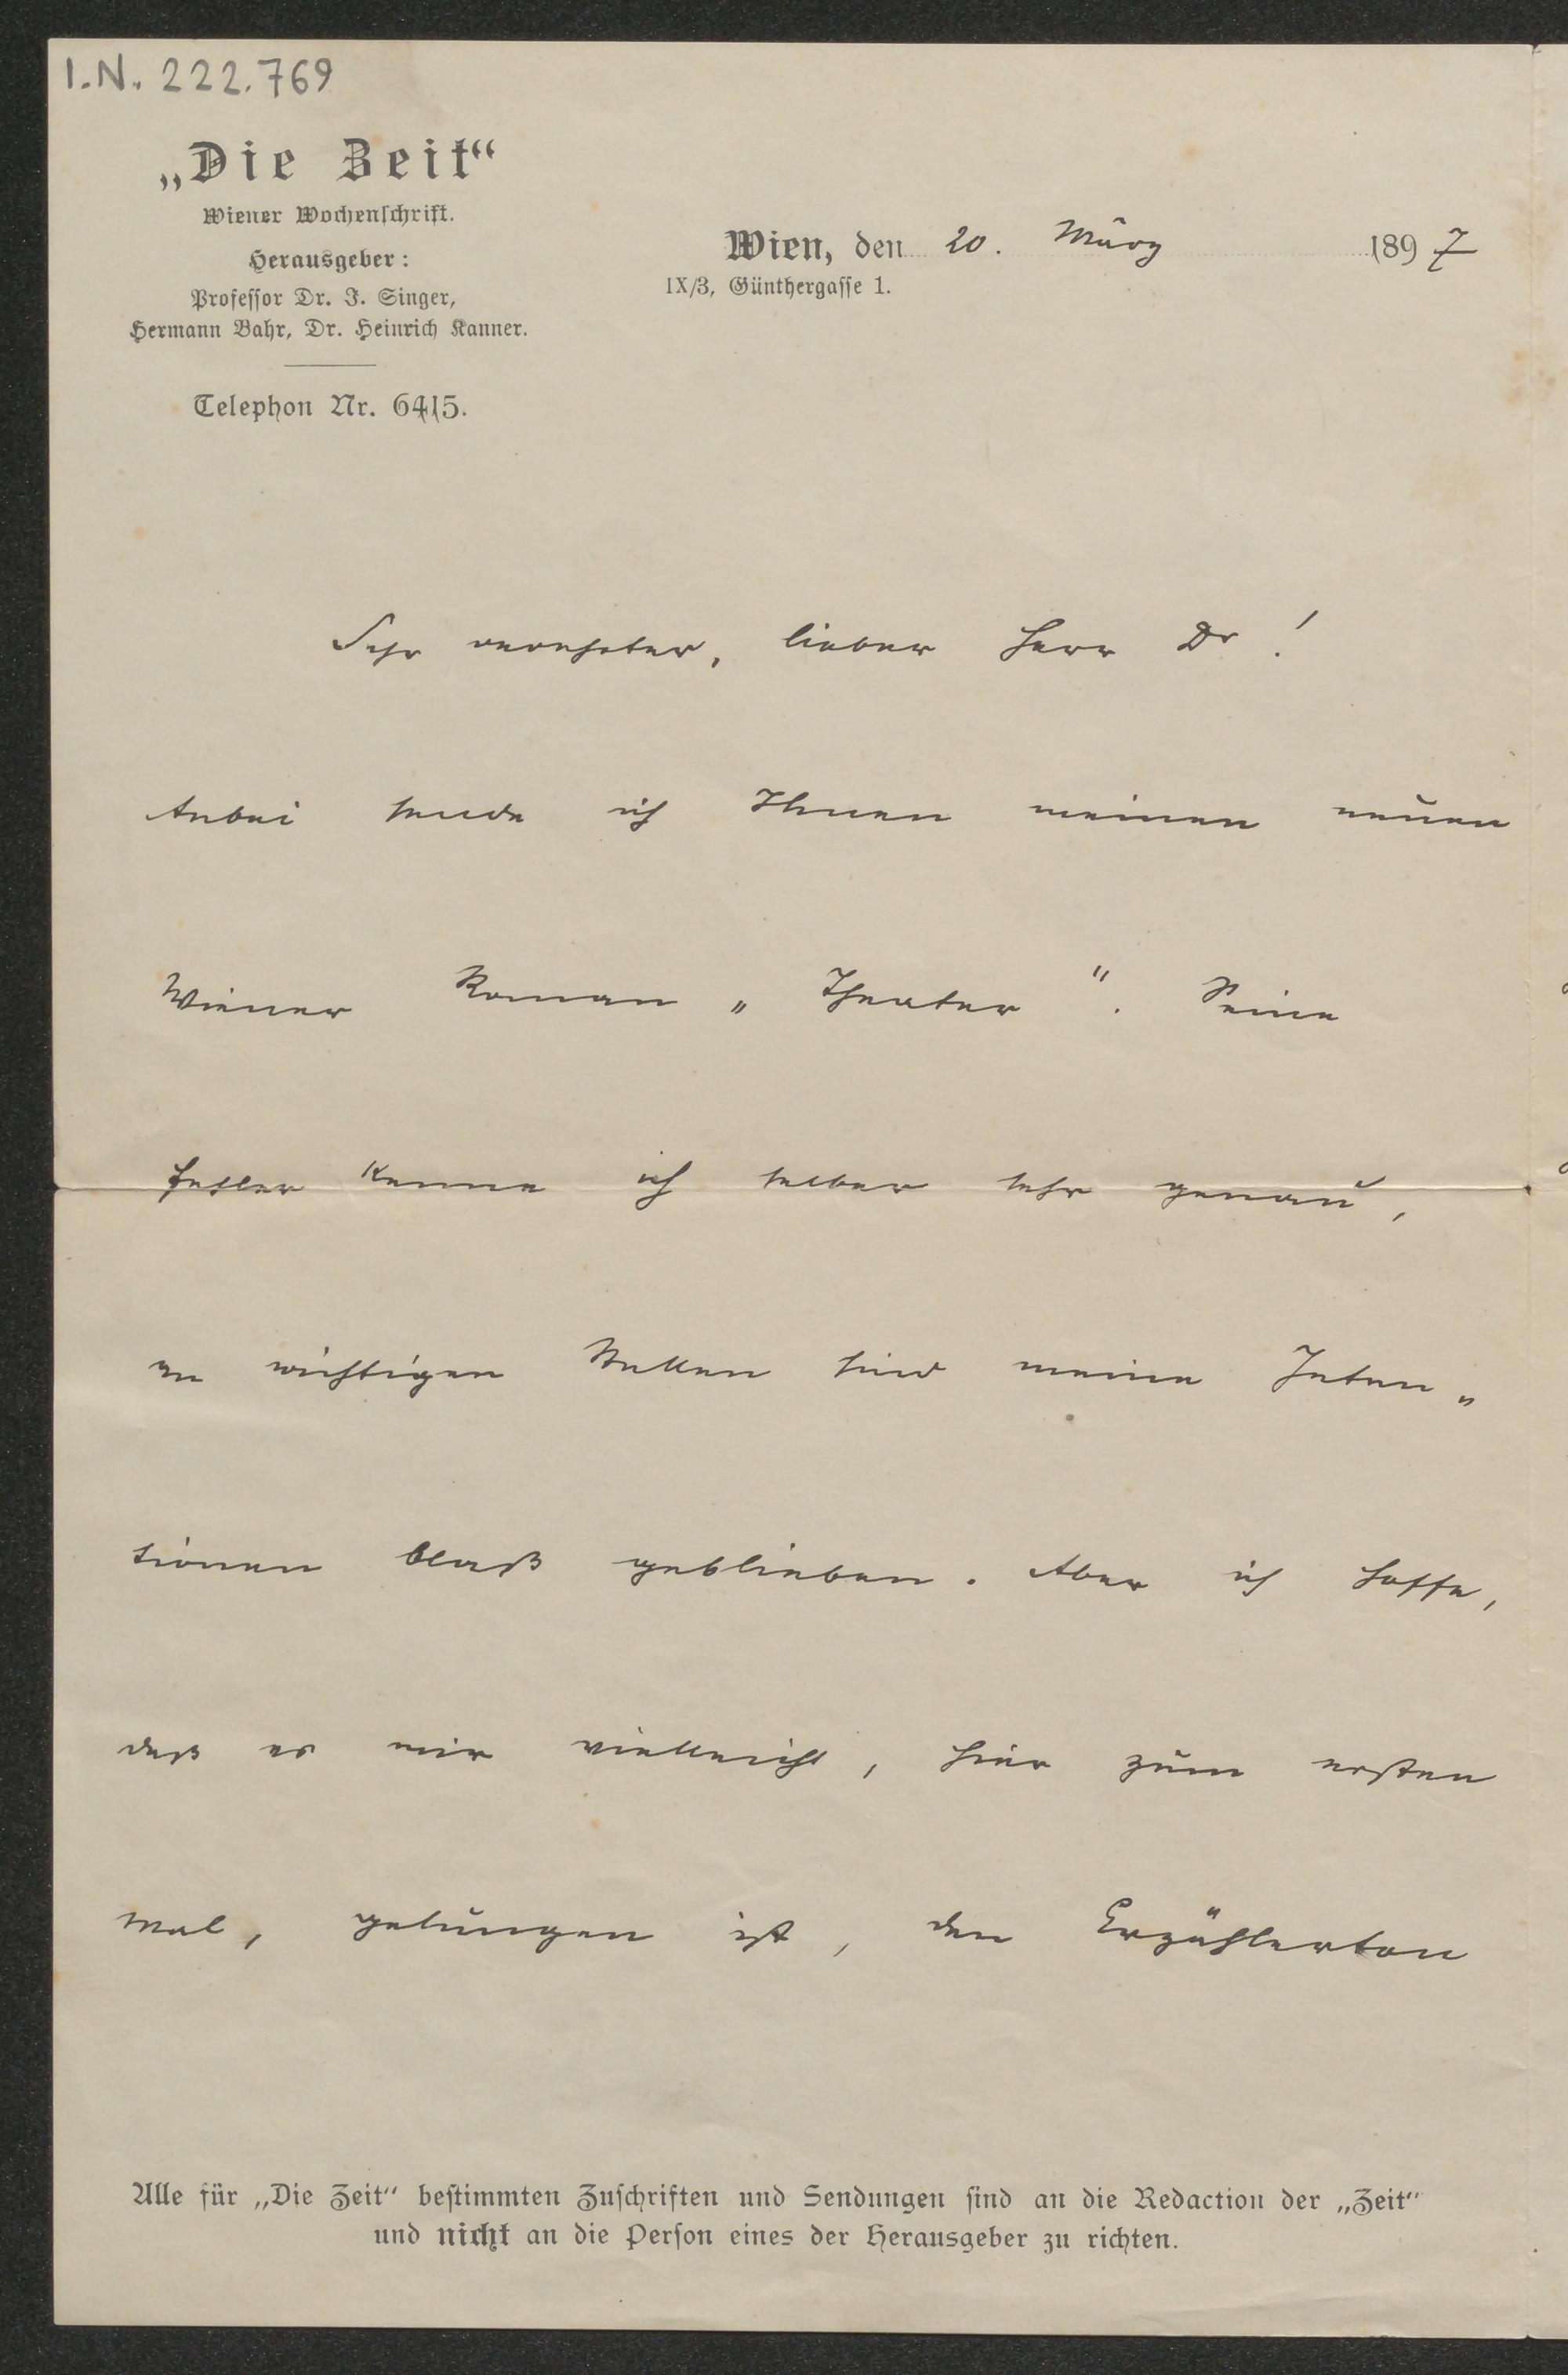 I.N. 222.769
„Die Zeit“
Wiener Wochenschrift.
Herausgeber:
Professor Dr. J. Singer,
Hermann Bahr, Dr. Heinrich Kanner.
Telephon Nr. 6415.
Wien, den 20. März 1897
IX/3, Günthergasse 1.
Sehr verehrter, lieber Herr Dr!
Anbei sende ich Ihnen meinen neuen
Wiener Roman „Theater“. Seine
Fehler kenne ich selber sehr genau,
an wichtigen Stellen sind meine Inten„
tionen blaß geblieben. Aber ich hoffe,
daß es mir vielleicht, hier zum ersten
Mal, gelungen ist, den Erzählerton
Alle für „Die Zeit“ bestimmten Zuschriften und Sendungen sind an die Redaction der „Zeit“
und nicht an die Person eines der Herausgeber zu richten.